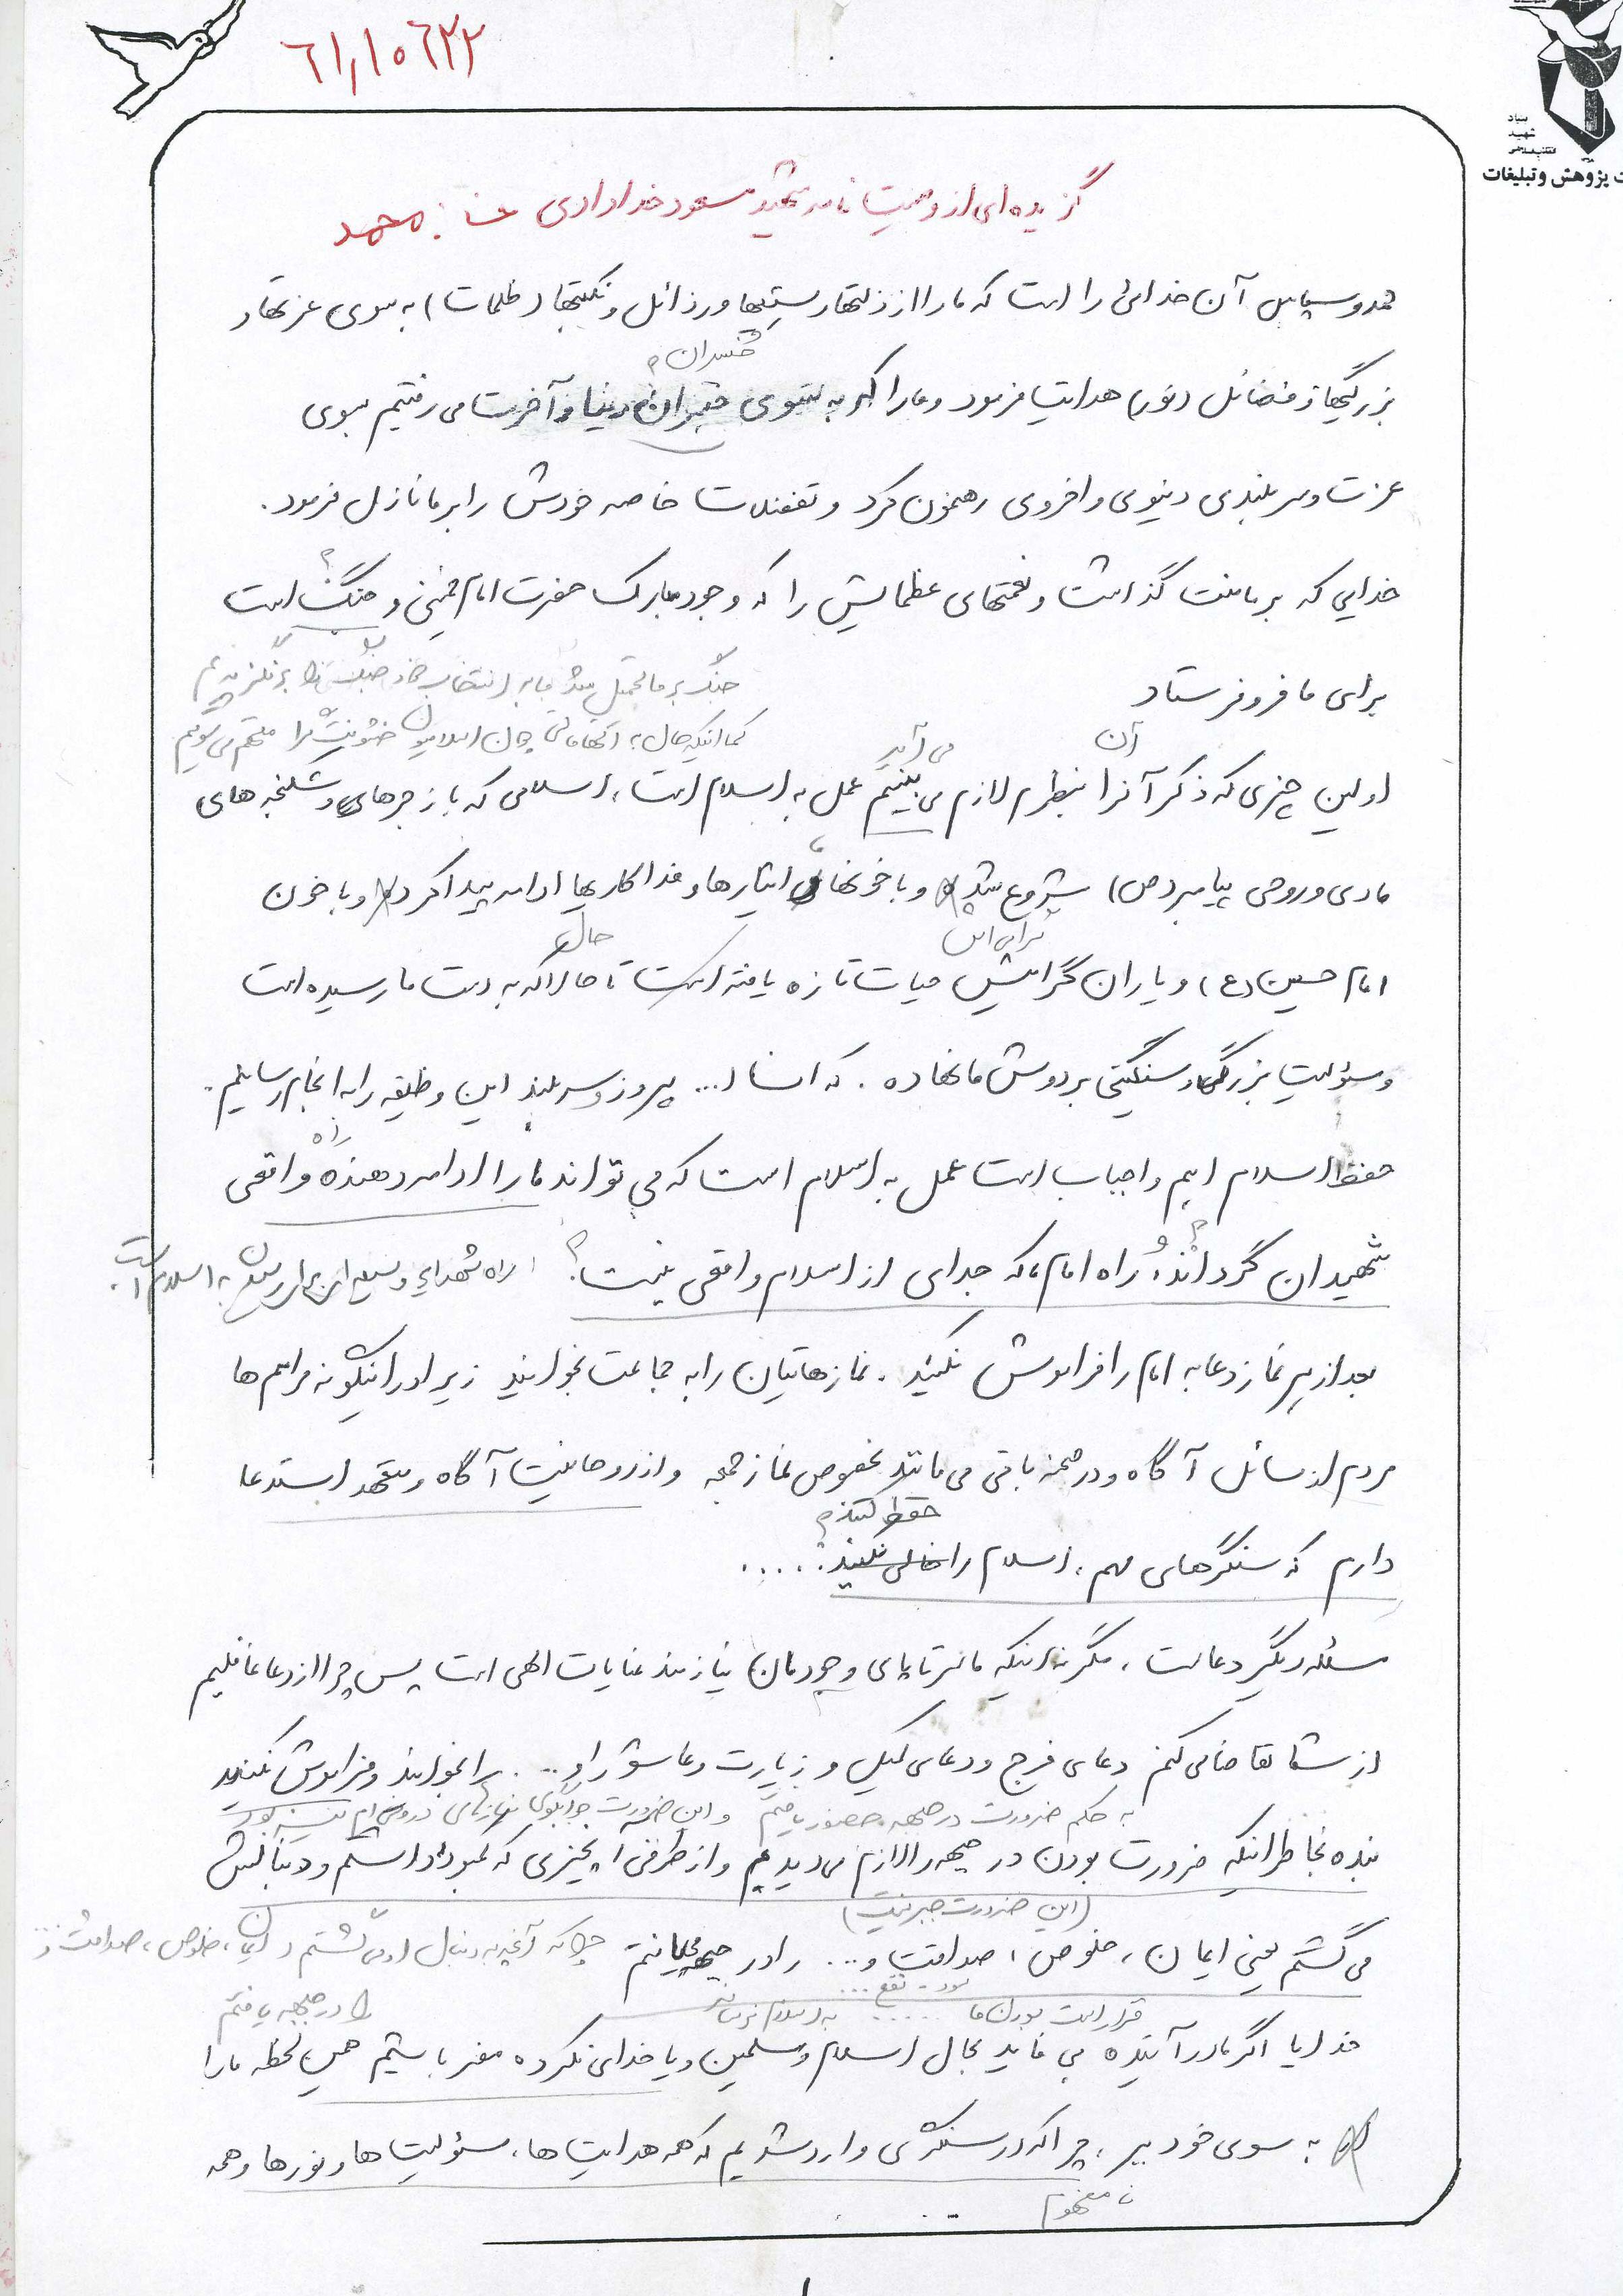 ۶۱,۱۰۶۲۲
بنیاد
شهید
انقلاب اسلامی
پژوهش و تبلیغات
گزیده‌ای از وصیت نامه شهید مسعود خدادادی محمد
حمد و سپاس آن خدائی را است که ما را از ذلتها و پستیها و رذائل و نکبتها (ظلمات) به سوی عزتها و
خسران
بزرگیها و فضائل (نور) هدایت فرمود و ما را که به سوی خسران دنیا و آخرت می رفتیم بسوی
عزت و سربلندی دنیوی و اخروی رهنمون کرد و تفضلات خاصه خودش را بر ما نازل فرمود.
خدایی که بر ما منت گذاشت و نعمتهای عظمایش را که وجود مبارک حضرت امام خمینی و جنگ است
برای ما فرو فرستاد
جنگ بر ما تحمیل شد ما به انتخاب خود جنگ را بر نگزیدیم
آن
می آید
اولین چیزی که ذکر آنرا بنظرم لازم می بینم عمل به اسلام است، اسلامی که با زجرهای و شکنجه های
مادی و روحی پیامبر (ص) شروع شد و با خونها و ایثارها و فداکاریها ادامه پیدا کرد و با خون
حال
امام حسین (ع) و یاران گرامیش حیات تازه یافته است تا حالا که به دست ما رسیده است
و مسؤلیت بزرگ و سنگینی بر دوش ما نهاده. که انشاا... پیروز و سربلند این وظیفه را به انجام رسانیم.
راه
حفظ اسلام اهم واجبات است عمل به اسلام است که می تواند ما را ادامه دهنده واقعی
شهیدان گرداند، و راه امام ما که جدای از اسلام واقعی نیست؟
بعد از هر نماز دعا به امام را فراموش نکنید. نمازهایتان را به جماعت بخوانید زیرا در اینگونه مراسم ها
مردم از مسائل آگاه و در صحنه باقی می مانند بخصوص نماز جمعه و از روحانیت آگاه و متعهد استدعا
حفظ کنند
دارم که سنگرهای مهم، اسلام را خالی نکنید.....
مسئله دیگر دعاست، مگر نه اینکه ما سر تا پای وجودمان نیازمند عنایات الهی است پس چرا از دعا غافلیم
از شما تقاضا می کنم دعای فرج و دعای کمیل و زیارت عاشورا و ... را بخوانید و فراموش نکنید
به حکم ضرورت در جبهه حضور یافتم و این ضرورت جوابگوی نیازهای درونی ام نیز بود
بنده بخاطر اینکه ضرورت بودن در جبهه را لازم می دیدم و از طرفی آن چیزی که کمبود داشتم و دنبالش
(این ضرورت جبر نیست)
می گشتم یعنی ایمان، خلوص، صداقت و... را در جبهه یافتم چرا که آنچه به دنبال او می گشتم (ایمان، خلوص، صداقت و ...
را در جبهه یافتم
سود - نفع ...
قرار است بودن ما ......
خدایا اگر ما در آینده بی فایده بحال اسلام و مسلمین و یا خدای نکرده مضر باشیم همین لحظه ما را
به سوی خود ببر، چرا که در سنگری وارد شدیم که همه هدایت ها، مسؤلیت ها و نورها و همه
نامفهوم
۱